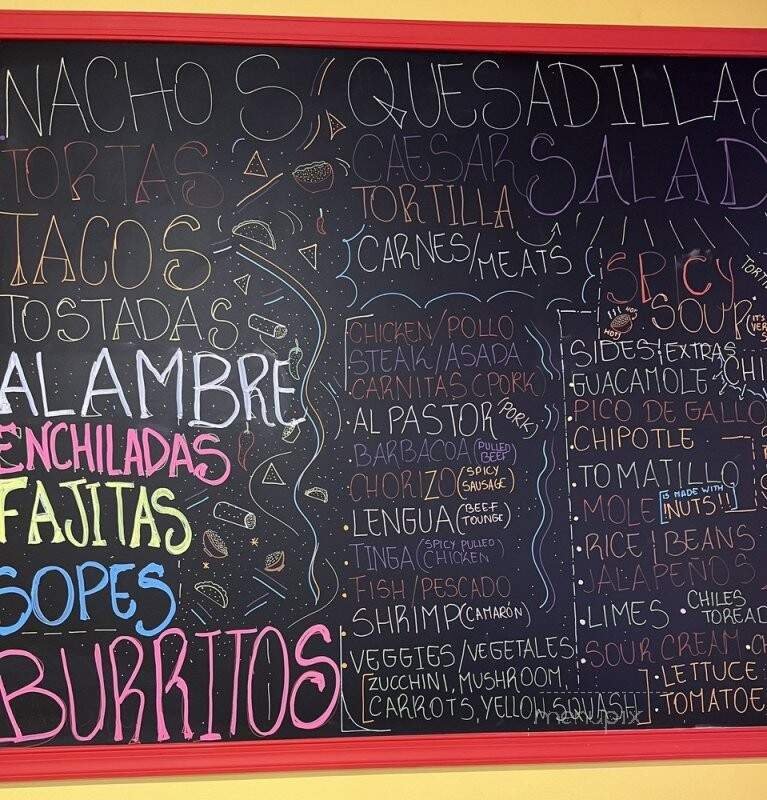 NACHOS
TORTAS
TACOS
TOSTADAS
ALAMBRE
ENCHILADAS
FAJITAS
SOPES
BURRITOS
QUESADILLAS
CAESAR SALAD
TORTILLA
CARNES/MEATS
CHICKEN/POLLO
STEAK/ASADA
CARNITAS (PORK)
AL PASTOR (PORK)
BARBACOA (PULLED BEEF)
CHORIZO (SPICY SAUSAGE)
LENGUA (BEEF TOUNGE)
TINGA (SPICY PULLED CHICKEN
FISH/PESCADO
SHRIMP (CAMARÓN)
VEGGIES/VEGETALES
[ZUCCHINI, MUSHROOM,
CARROTS, YELLOW SQUASH]
SPICY
SOUP
HOT HOT!
SIDES/EXTRAS
GUACAMOLE
PICO DE GALLO
CHIPOTLE
TOMATILLO
MOLE [IS MADE WITH NUTS!!]
RICE | BEANS
JALAPEÑOS
LIMES • CHILES
SOUR CREAM
• LETTUCE
• TOMATOE
menupix